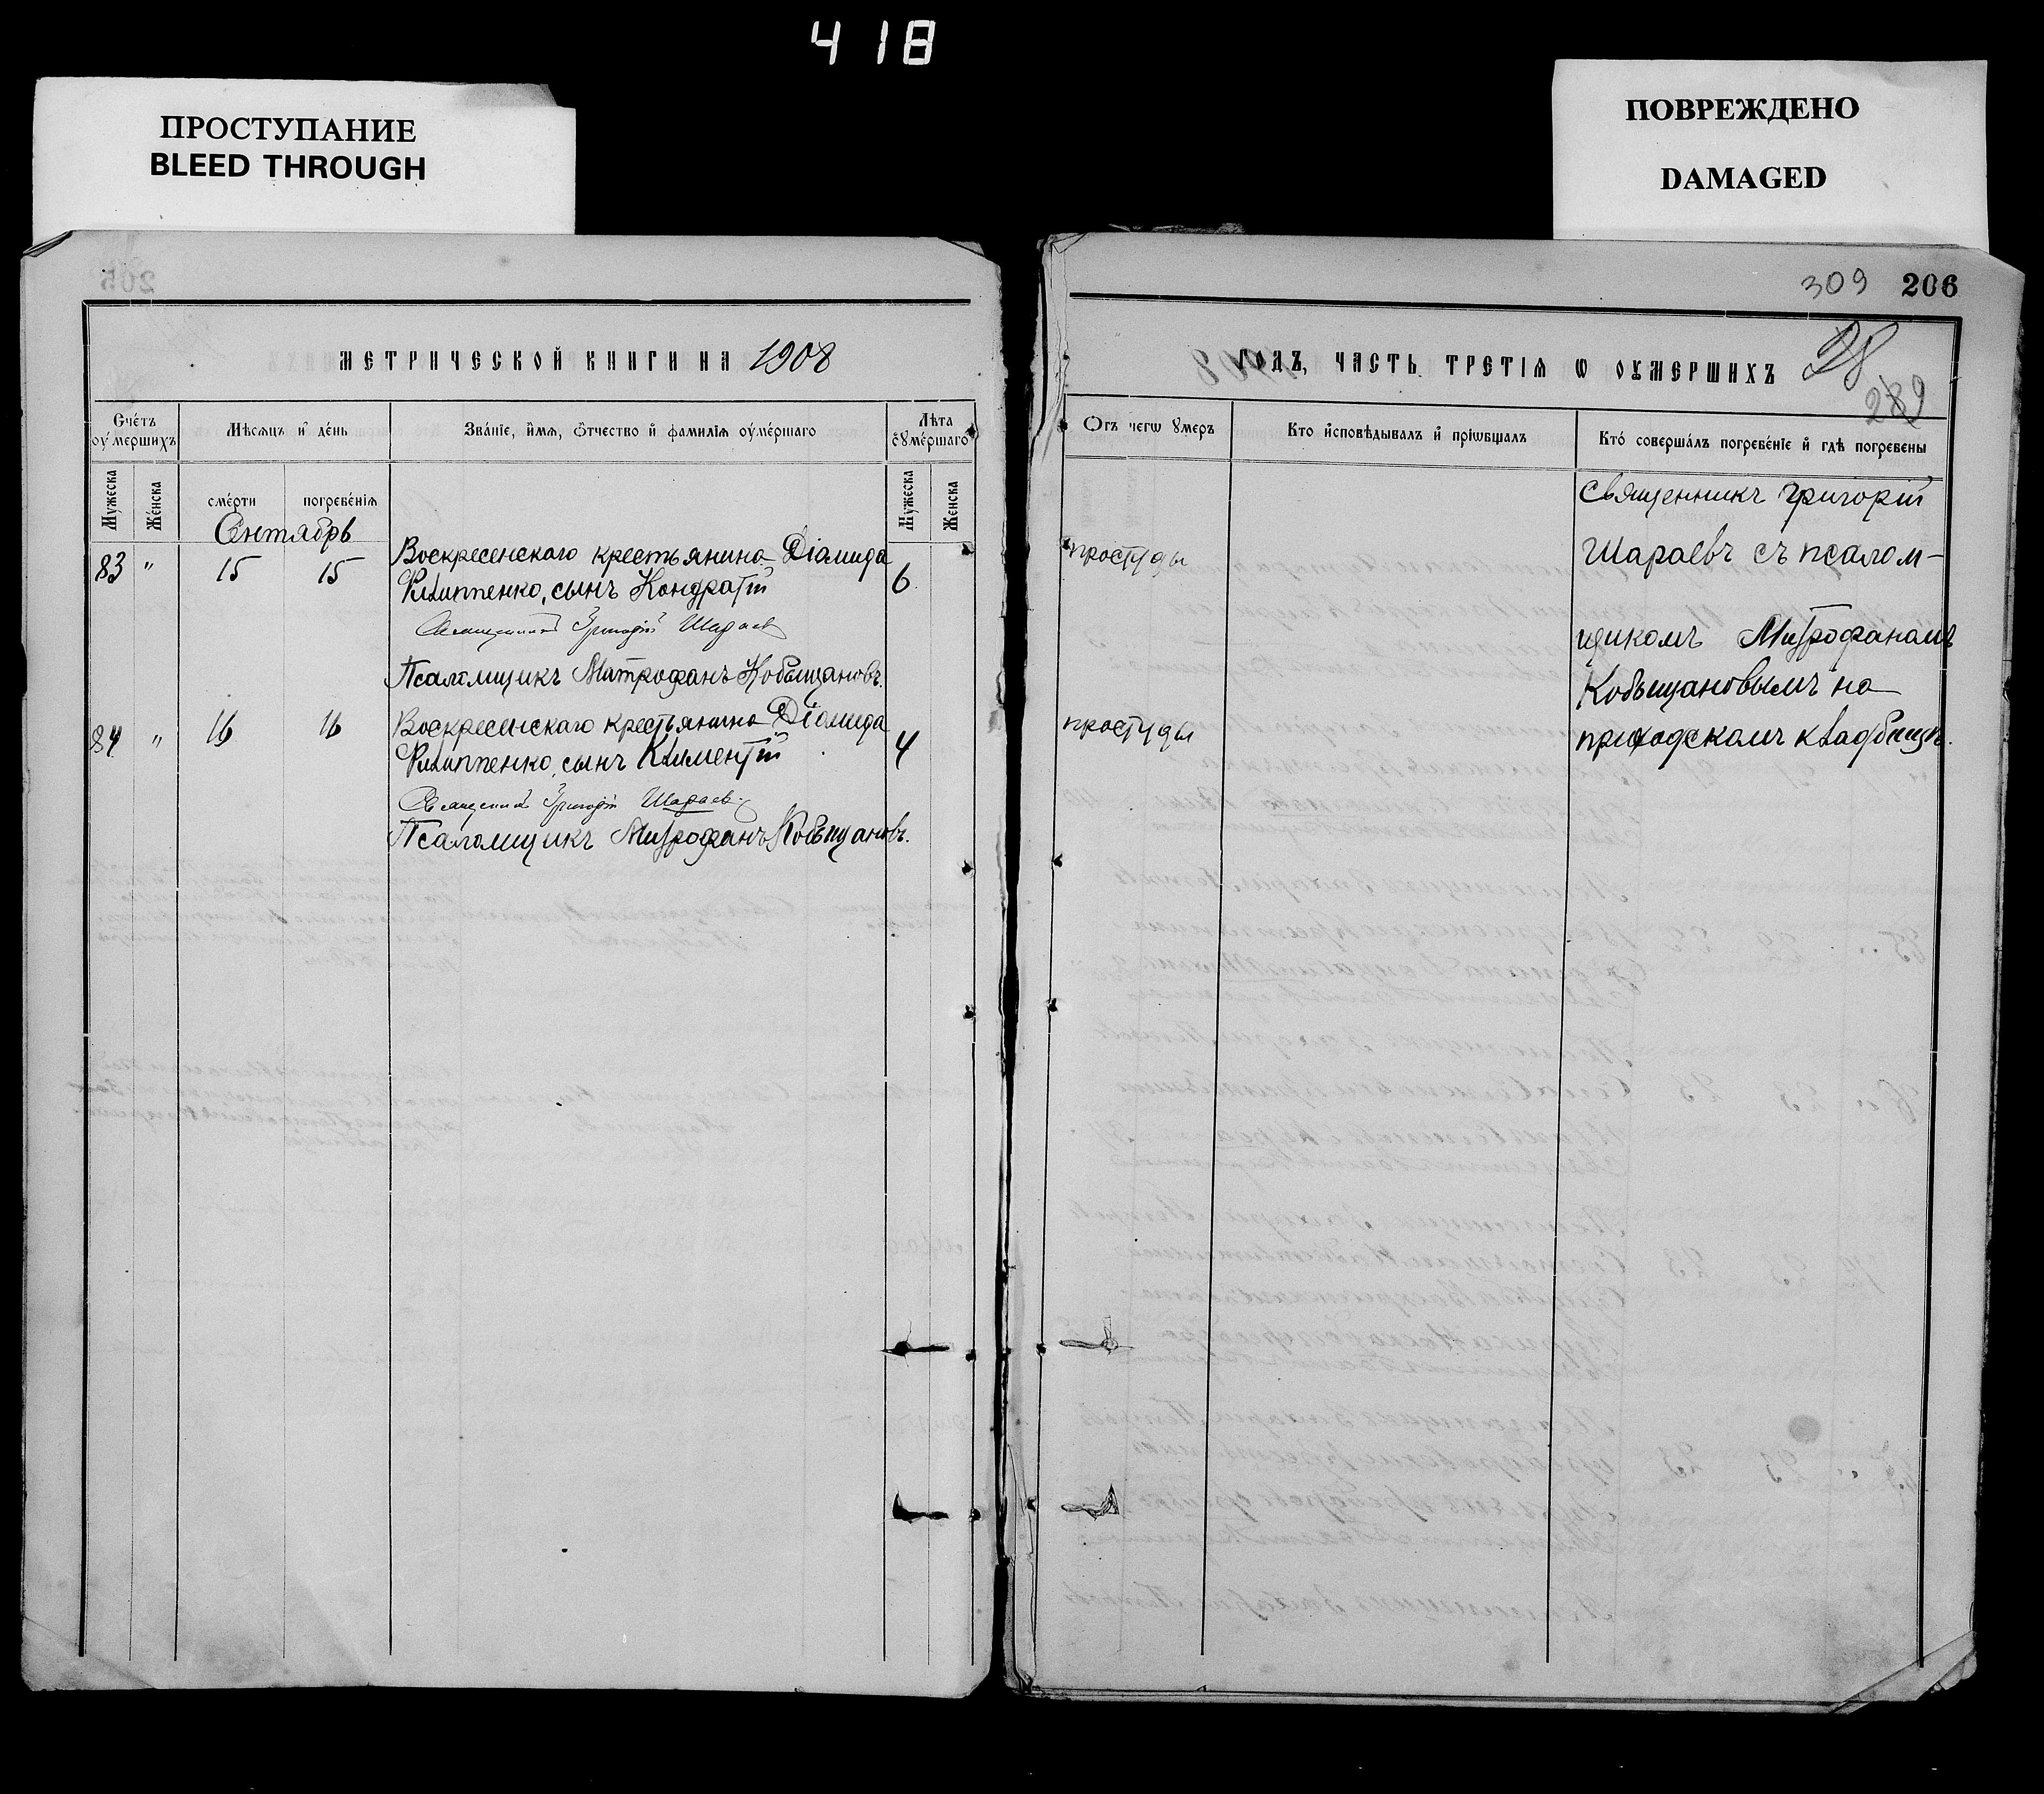 418
ПРОСТУПАНИЕ
BLEED THROUGH
ПОВРЕЖДЕНО
DAMAGED
МЕТРИЧЕСКОЙ КНИГИ НА 1908
Счётъ оумершихъ
Мѣсяцъ и день
Званіе, имя, ѿтчество и фамилія оумершаго
Лѣта оумершаго
Мужеска
Женска
смерти
погребенія
Мужеска
Женска
Сентябрь
83 " 15 15 Воскресенскаго крестьянина Діомида
Филиппенко, сынъ Кондратій 6
Священникъ Григорій Шараев
Псаломщикъ Митрофанъ Кобыщановъ.
84 " 16 16 Воскресенскаго крестьянина Діомида
Филиппенко, сынъ Климентій 4
Священникъ Григорій Шараев
Псаломщикъ Митрофанъ Кобыщановъ.
309 206
ГОДЪ, ЧАСТЬ ТРЕТІЯ Ѡ ОУМЕРШИХЪ
289
Отъ чегѡ умеръ
Кто исповѣдывалъ и пріѡбщалъ
Кто совершалъ погребеніе и гдѣ погребены
Священникъ Григорій
простуды
Шараевъ съ псалом-
щикомъ Митрофаномъ
Кобыщановымъ на
простуды
приходскомъ кладбищѣ.